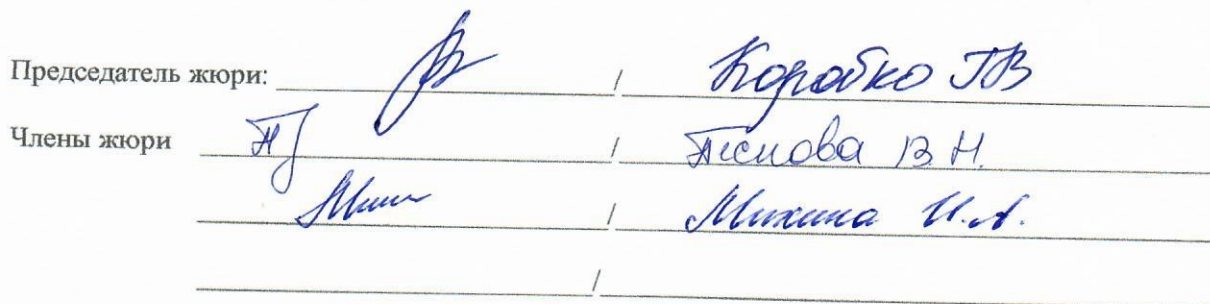 Председатель жюри: / Коробко ГВ
Члены жюри / Пескова В.Н.
/ Михина И.А.
/